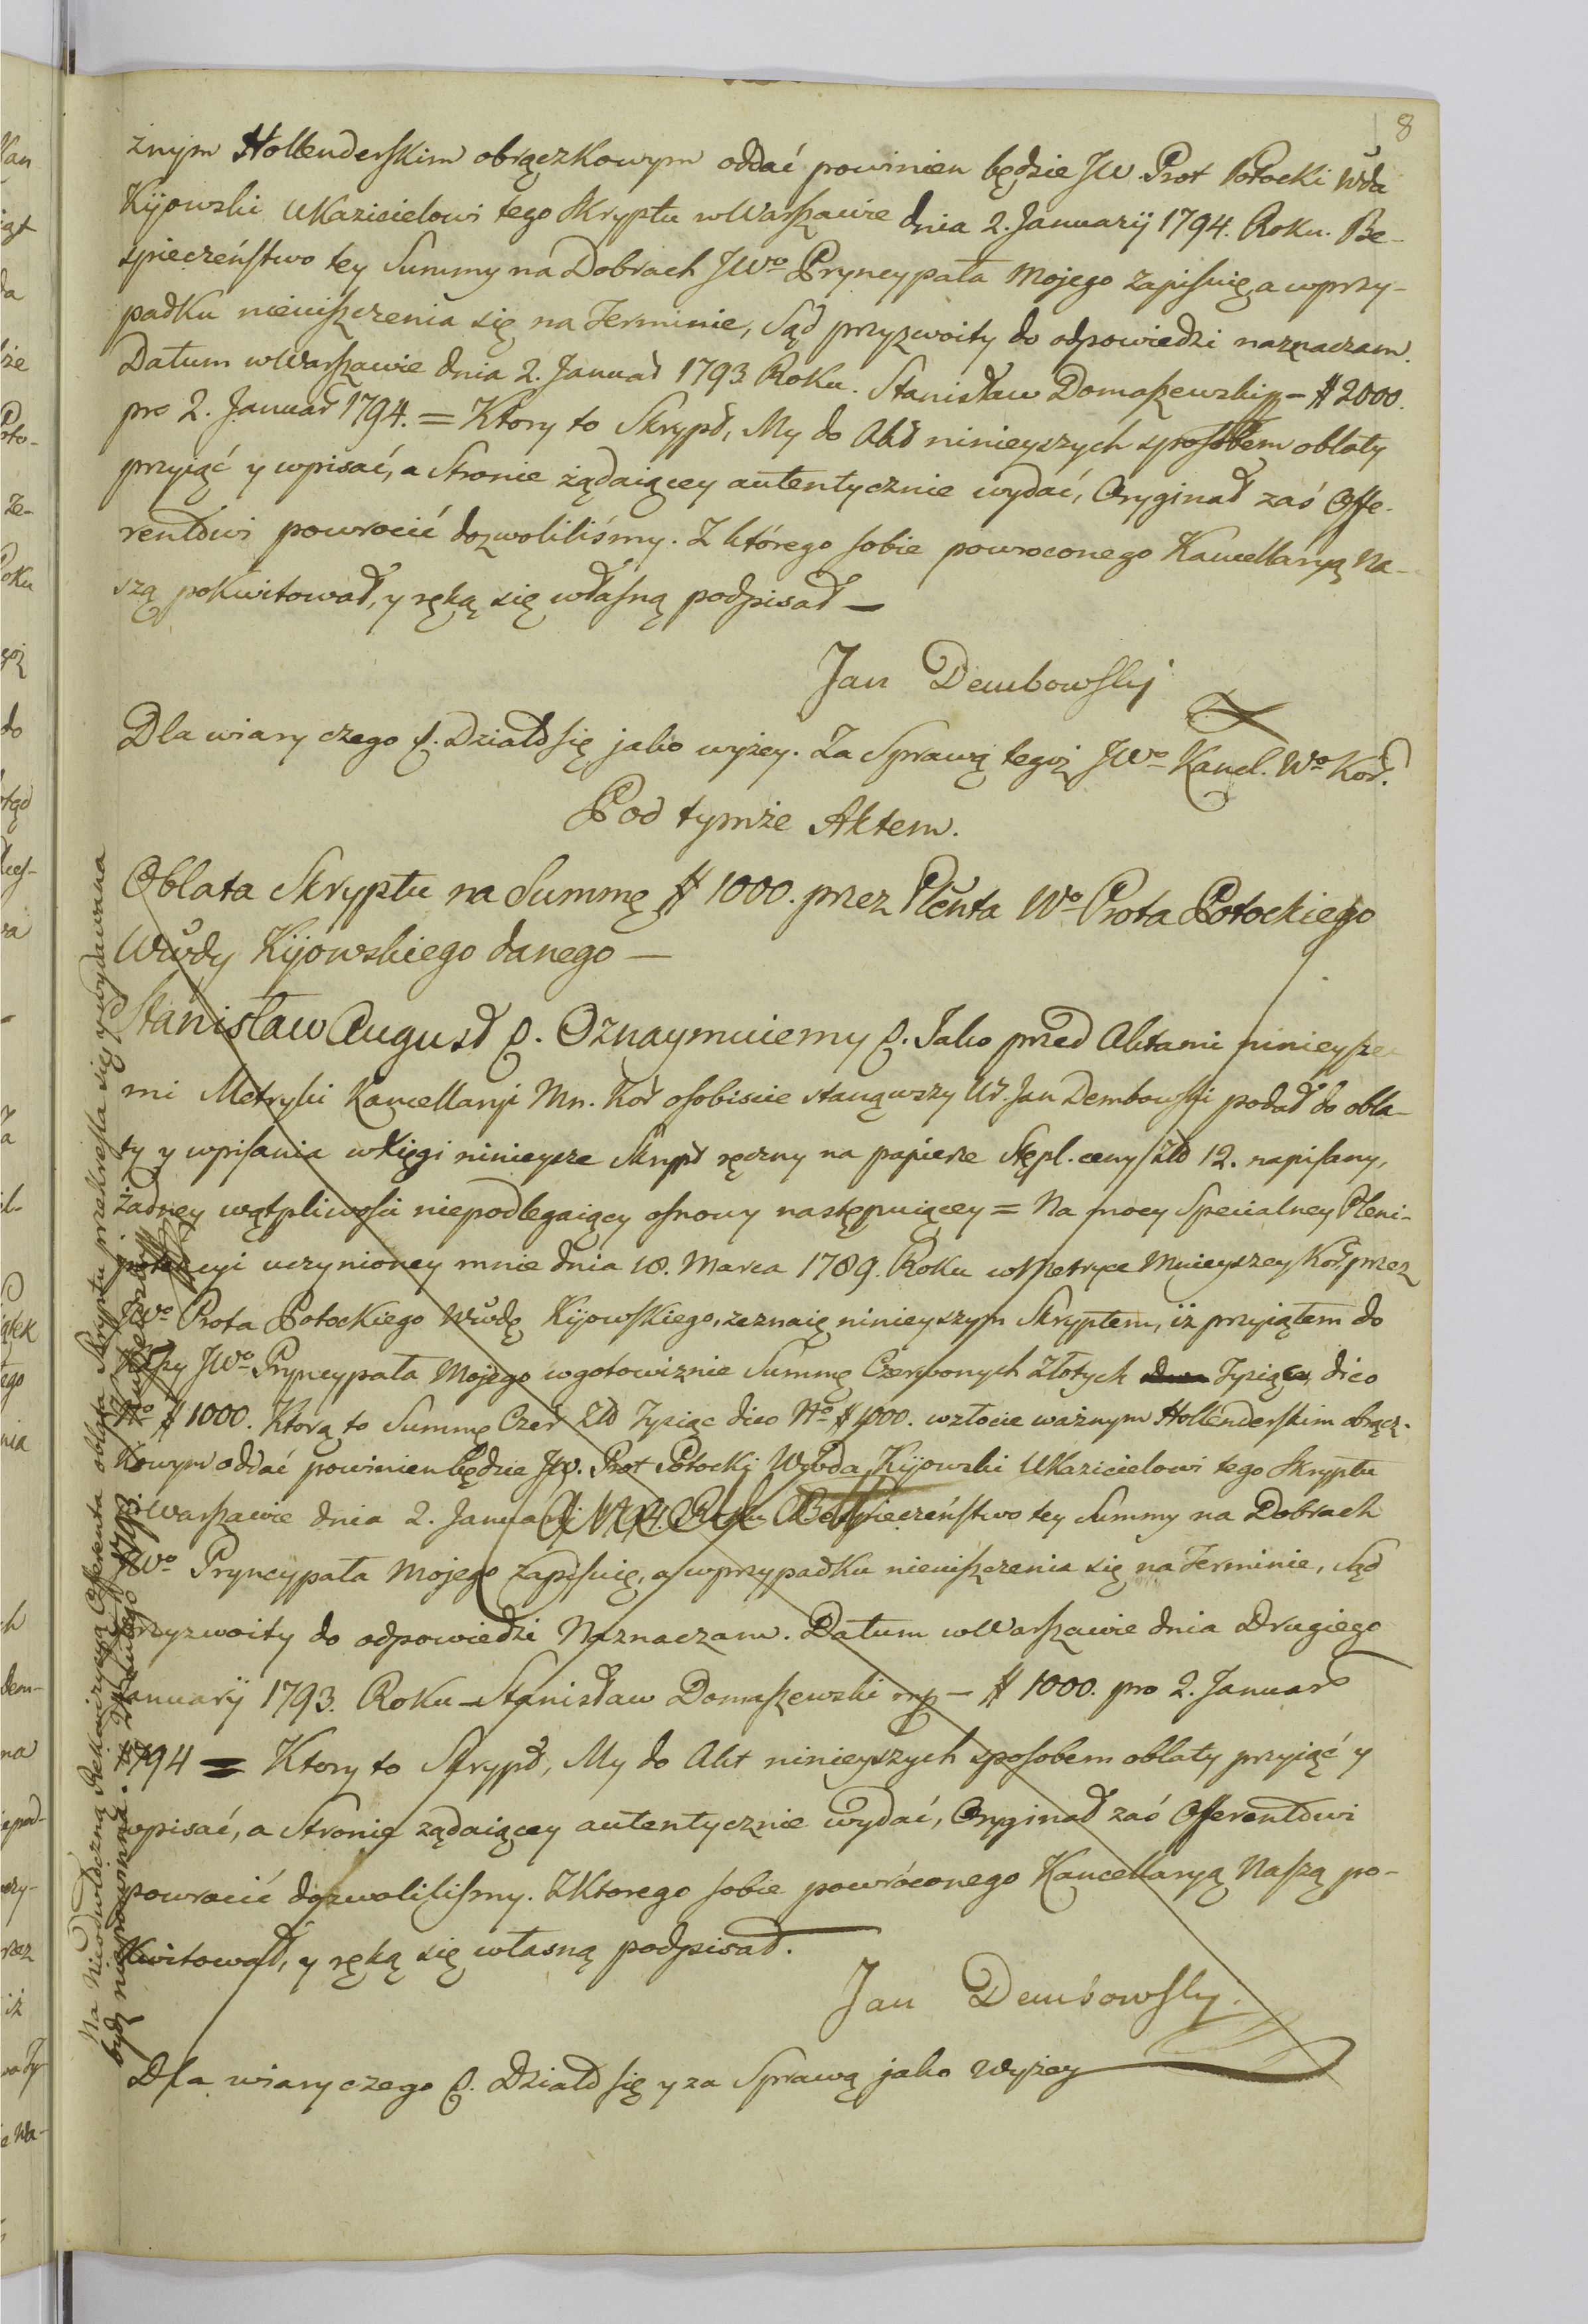 8
żnym Hollenderskim obrączkowym oddać powinien będzie JW. Prot Potocki Wda
Kijowski Ukazicielowi tego Skryptu w Warszawie dnia 2. Januarij 1794. Roku. Be-
spieczeństwo tey Summy na Dobrach JWo Pryncypała Mojego zapisuię a w przy-
padku nieuiszczenia się na Terminie, Sąd przyzwoity do odpowiedzi naznaczam.
Datum w Warszawie dnia 2. Januar 1793 Roku. Stanisław Domaszewski mp – # 2000.
pro 2. Januar 1794. = Ktory to Skrypt, My do Akt ninieyszych sposobem oblaty
przyiąć y wpisać, a Stronie żądaiącey autentycznie wydać, Oryginał zaś Offe-
rentowi powrocić dozwoliliśmy. Z którego sobie powroconego Kancellaryą Na-
szą pokwitował, y ręką się własną podpisał —
Jan Dembowsky
Dla wiary czego &. Działo się jako wyżey. Za Sprawą tegoż JWo Kancl. Wo Kor.
Pod tymże Aktem.
Oblata Skryptu na Summę # 1000. przez Plenta Wo Prota Potockiego
Wwdy Kijowskiego danego —
Stanisław August &. Oznaymuiemy &. Jako przed Aktami ninieysze
mi Metryki Kancellaryi Mn. Kor osobiscie stanąwszy Ur. Jan Dembowski podał do obla-
ty y wpisania w Xięgi ninieysze Skrypt ręczny na papierze Stępl. ceny Złł 12. napisany,
żadney wątpliwości niepodlegaiący osnowy następuiącey = Na mocy Specialney Pleni-
potencyi uczynioney mnie dnia 18. Marca 1789. Roku w Metryce Mnieyszey Kor. przez
JWo Prota Potockiego Wwdę Kijowskiego, zeznaię ninieyszym Skryptem, iż przyiąłem do
Kassy JWo Pryncypała Mojego w gotowiznie Summę Czerwonych Złotych dwa Tysiąc, dico
No # 1000. Ktorą to Summę Czer Złł Tysiąc dico No # 1000. w złocie ważnym Hollenderskim obrącz-
kowym oddać powinien będzie JW. Prot Potocki Wwda Kijowski Ukazicielowi tego Skryptu
w Warszawie dnia 2. Januarij 1794. Roku Bespieczeństwo tey Summy na Dobrach
JWo Pryncypała Mojego zapisuię, a w przypadku nieuiszczenia się na Terminie, Sąd
przyzwoity do odpowiedzi Naznaczam. Datum w Warszawie dnia Drugiego
Januarij 1793. Roku – Stanisław Domaszewski mp – # 1000. pro 2. Januar
1794 = Ktory to Skrypt, My do Akt ninieyszych sposobem oblaty przyiąć y
wpisać, a Stronie żądaiącey autentycznie wydać, Oryginał zaś Offerentowi
powrocić dozwolilismy. Z Ktorego sobie powróconego Kancellaryą Naszą po-
kwitował, y ręką się własną podpisał.
Jan Dembowsky.
Dla wiary czego &. Działo się y za Sprawą jako Wyżey
Na Nieodwłoczną Rekwizycyą Offerenta oblata Skryptu przekreśla się y wydawana
bydź niepowinna. 1793